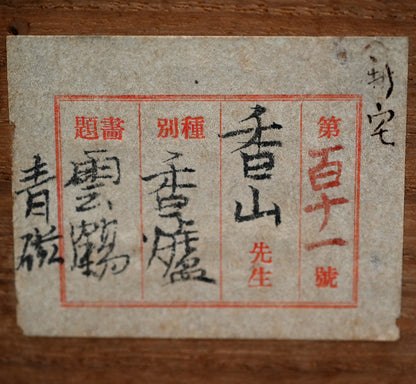 新宅
第百十一號
香山先生
種別
香爐
畫題
雲鶴
青磁